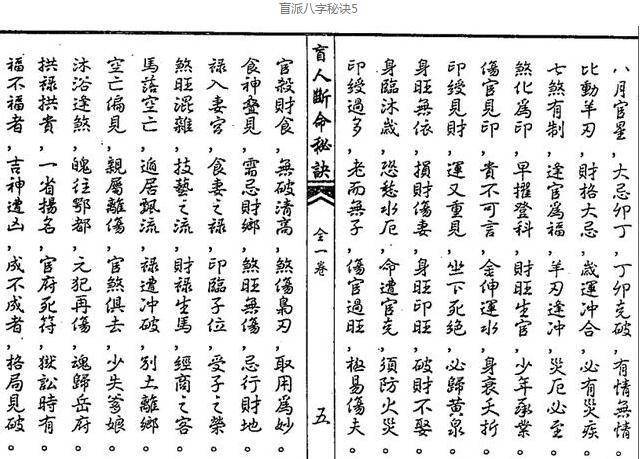 盲派八字秘诀5
八月官星，大忌卯丁，丁卯克破，有情無情。
比動羊刃，財格大忌，歲運冲合，必有災疾。
七煞有制，逢官爲福，羊刃逢冲，災厄必至。
煞化爲印，早擢登科，財旺生官，少年承業。
傷官見印，貴不可言，金伸運水，身衰夭折。
印綬見財，運又重見，坐下死絕，必歸黄泉。
身旺無依，損財傷妻，身旺印旺，破財不娶。
身臨沐歲，恐愁水厄，命遭官克，須防火災。
印綬過多，老而無子，傷官過旺，極易傷夫。
盲人斷命秘訣
全一卷
五
官殺財食，無破清高，煞傷梟刃，取用爲妙。
食神叠見，需忌財鄉，煞旺無傷，忌行財地。
禄入妻宮，食妻之禄，印臨子位，受子之榮。
煞旺混雜，技藝之流，財禄生馬，經商之客。
馬落空亡，遁居飄流，禄遭冲破，别土離鄉。
空亡偏見，親屬離傷，官煞俱去，少失爹娘。
沐浴逢煞，魄往鄂都，元犯再傷，魂歸岳府。
拱禄拱貴，一省揚名，官府死符，獄訟時有。
福不福者，吉神遭凶，成不成者，格局見破。